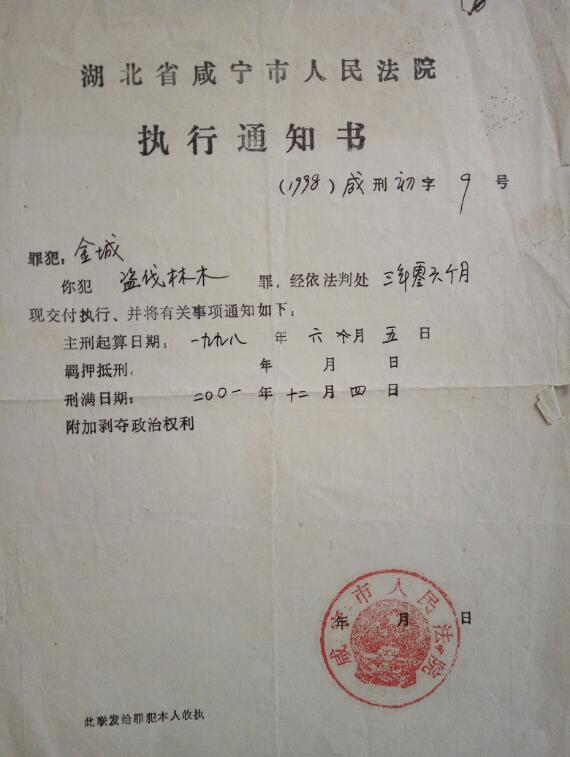 湖北省咸宁市人民法院
执行通知书
(1998)咸刑初字9号
罪犯:金城
你犯 盗伐林木 罪,经依法判处 三年零六个月
现交付执行、并将有关事项通知如下:
主刑起算日期:一九九八 年 六 月 五 日
羁押抵刑: 年 月 日
刑满日期:二〇〇一 年 十二 月 四 日
附加剥夺政治权利
咸宁市人民法院
年 月 日
此联发给罪犯本人收执